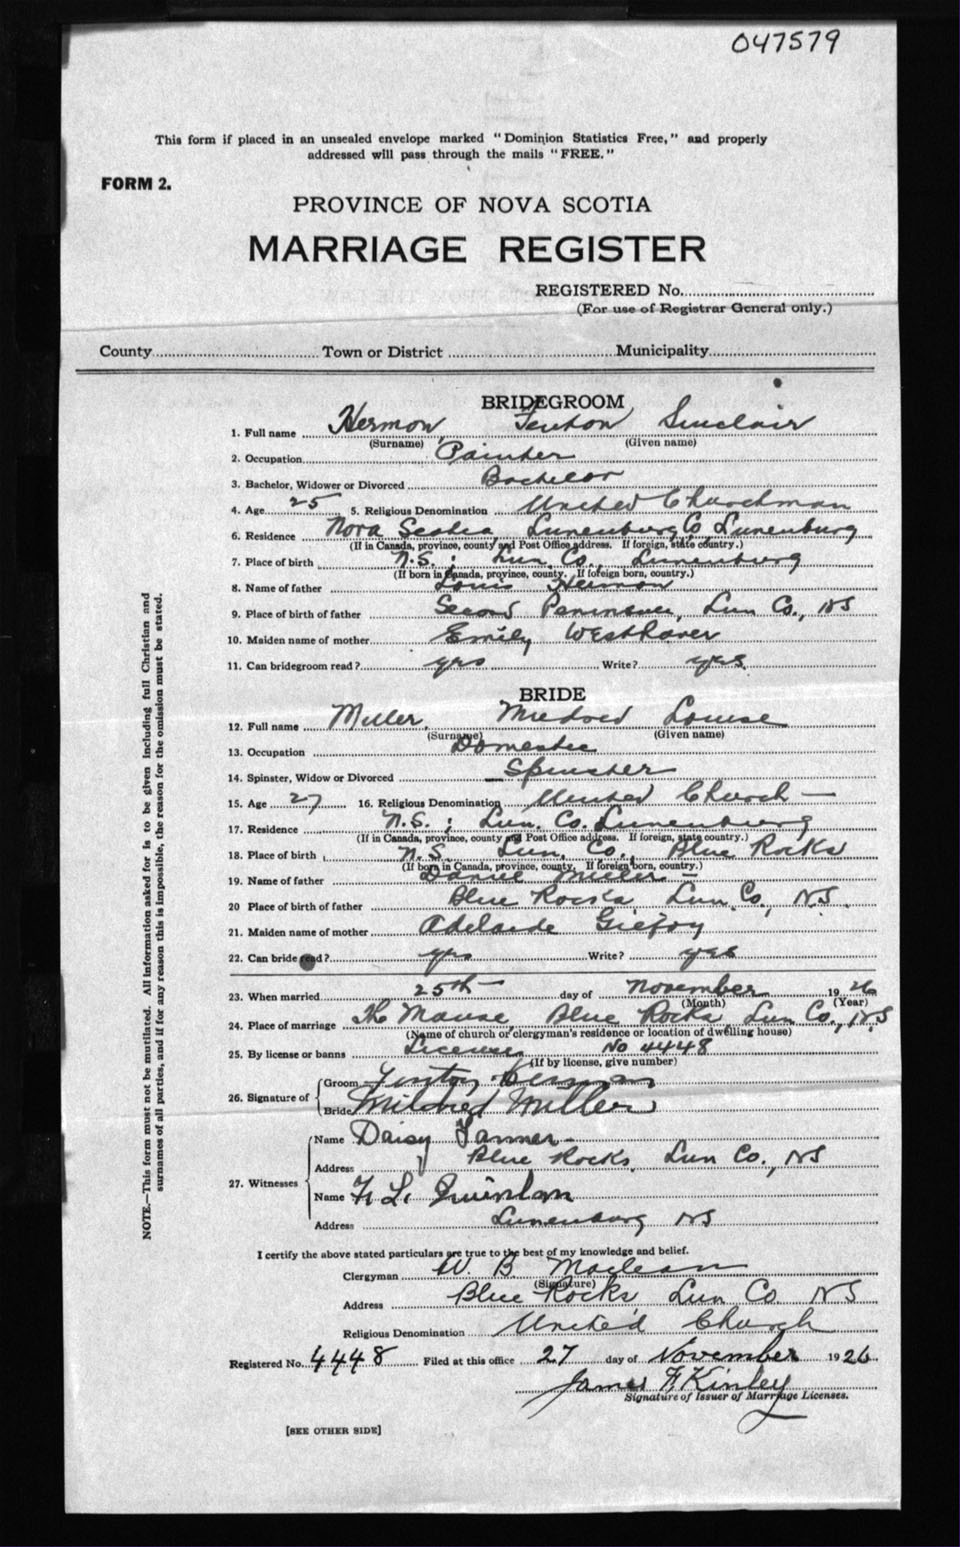 047579
This form if placed in an unsealed envelope marked "Dominion Statistics Free," and properly
addressed will pass through the mails "FREE."
FORM 2.
PROVINCE OF NOVA SCOTIA
MARRIAGE REGISTER
REGISTERED No.
(For use of Registrar General only.)
County Town or District Municipality
BRIDEGROOM
1. Full name Hermon Fenton Sinclair
(Surname) (Given name)
2. Occupation Painter
3. Bachelor, Widower or Divorced Bachelor
4. Age 25 5. Religious Denomination United Churchman
6. Residence Nova Scotia, Lunenburg Co, Lunenburg
(If in Canada, province, county and Post Office address. If foreign, state country.)
7. Place of birth N.S. ; Lun. Co., Lunenburg
(If born in Canada, province, county. If foreign born, country.)
8. Name of father Louis Hermon
9. Place of birth of father Second Peninsula, Lun Co., NS
10. Maiden name of mother Emily Westhaver
11. Can bridegroom read? yes Write? yes
BRIDE
12. Full name Miller, Mildred Louise
(Surname) (Given name)
13. Occupation Domestic
14. Spinster, Widow or Divorced Spinster
15. Age 27 16. Religious Denomination United Church
17. Residence N.S. ; Lun. Co. Lunenburg
(If in Canada, province, county and Post Office address. If foreign, state country.)
18. Place of birth N.S. Lun. Co., Blue Rocks
(If born in Canada, province, county. If foreign born, country.)
19. Name of father Daniel Miller
20 Place of birth of father Blue Rocks Lun. Co., N.S.
21. Maiden name of mother Adelaide
22. Can bride read? yes Write? yes
23. When married 25th day of November 1926
(Month) (Year)
24. Place of marriage The Manse, Blue Rocks, Lun Co., NS
(Name of church or clergyman's residence or location of dwelling house)
25. By license or banns License No 4448
(If by license, give number)
26. Signature of Groom Fenton Hermon
Bride Mildred Miller
27. Witnesses Name Daisy Tanner
Address Blue Rocks, Lun Co., NS
Name H L. Quinlan
Address Lunenburg NS
I certify the above stated particulars are true to the best of my knowledge and belief.
Clergyman W. B Maclean
(Signature)
Address Blue Rocks Lun Co NS
Religious Denomination United Church
Registered No. 4448 Filed at this office 27 day of November 1926
James F Kinley
Signature of Issuer of Marriage Licenses.
[SEE OTHER SIDE]
NOTE.—This form must not be mutilated. All information asked for is to be given including full Christian and
surnames of all parties, and if for any reason this is impossible, the reason for the omission must be stated.